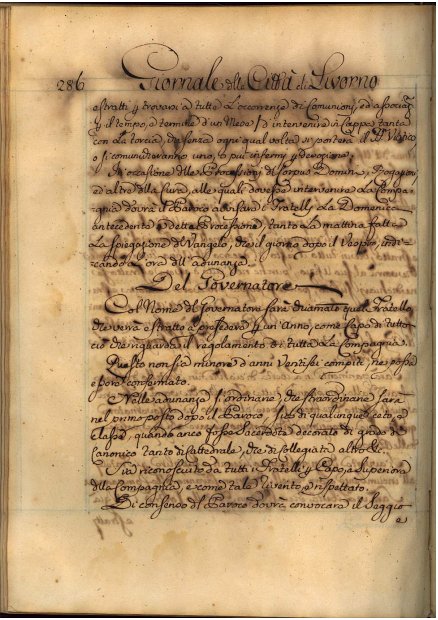 286 Giornale della Città di Livorno
estratti p trovarsi a tutte l'occorrenze di Comunioni, ed associaz.
p il tempo, e termine d'un Mese / d'intervenire in Cappa tanta
con la torcia, che senza ogni qual volta si porterà il SS. Viatico
o si comunicheranno uno, o più infermi p devozione;
In occasione delle Processioni di Corpus Domini, Rogazioni
ed altre della Cura, alle quali dovesse intervenire la Compa-
gnia dovrà il Paroco avvisare i Fratelli la Domenica
antecedente a dette Processione, tanto la mattina fatta
la spiegazione di Vangelo, che il giorno dopo il Vespro, indi-
cando l'ora dell'adunanza.
Del Governatore
Col Nome di Governatore sarà chiamato quel Fratello,
che verrà estratto a presedere p un'Anno, come Capo di tutto
ciò che riguarda il regolamento di tutta la Compagnia.
Questo non sia minore d'anni Ventisei compiti, ne possa
essere confermato.
Nelle adunanze sì ordinarie, che straordinarie sarà
nel primo posto dopo il Paroco, sia di qualunque ceto, e
Classe, quando anco fosse Sacerdote decorato di grado di
Canonico tanto di Cattedrale, che di Collegiata altro &c.
Sia riconosciuto da tutti i Fratelli p Capo, e Superiore
della Compagnia, e come tale riverito, e rispettato.
Di consenso del Paroco dovrà convocare il Seggio
e